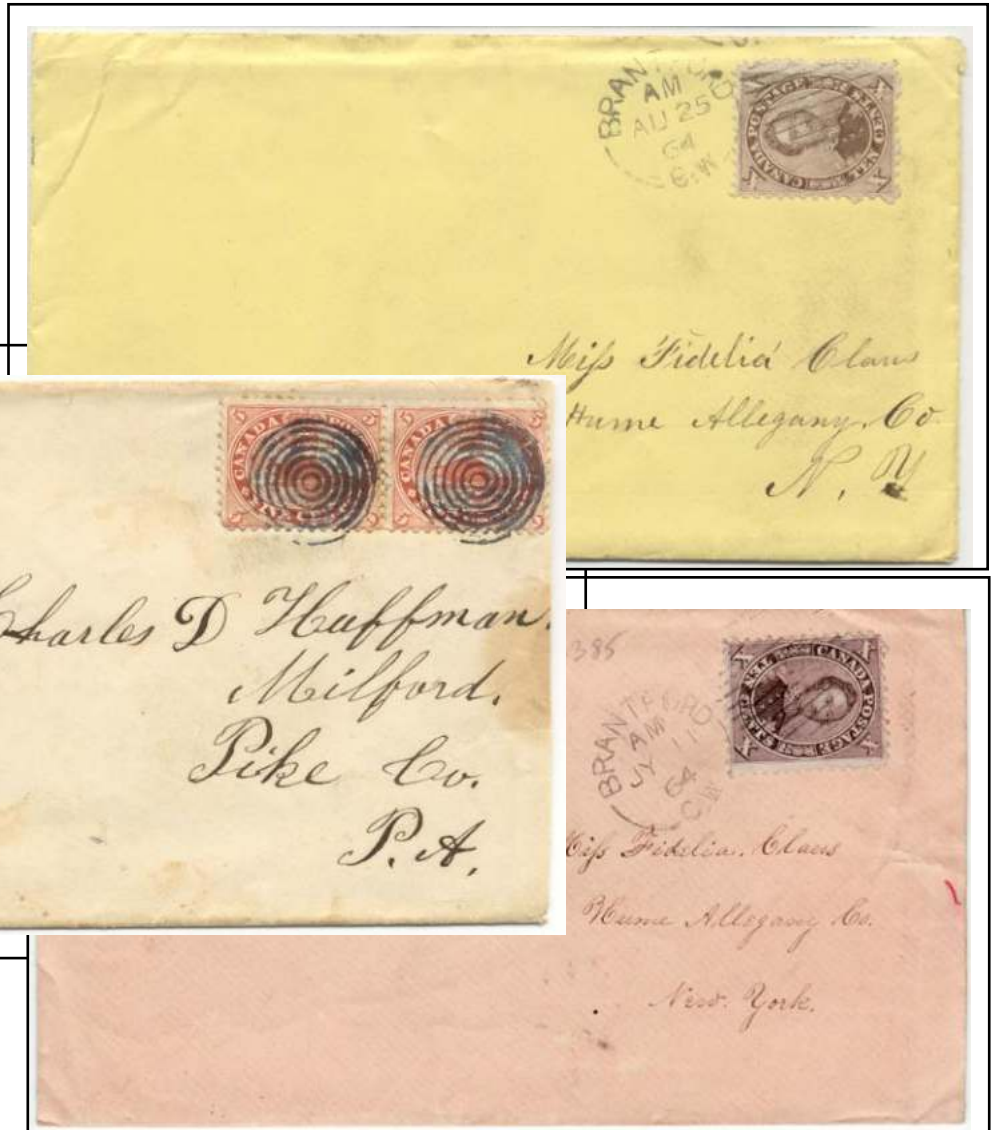 BRANTFORD
AM
AU 25
64
C.W
CANADA POSTAGE TEN CENTS
X X X X
Miss Fidelia Claus
Hume Allegany. Co
N. Y
5 CANADA 5
5 CANADA 5
Charles D Huffman.
Milford.
Pike Co.
P.A,
385
BRANTFORD
AM
JY 11
64
C.W
CANADA POSTAGE TEN CENTS
X X X X
Miss Fidelia. Claus
Hume Allegany Co.
New. York.